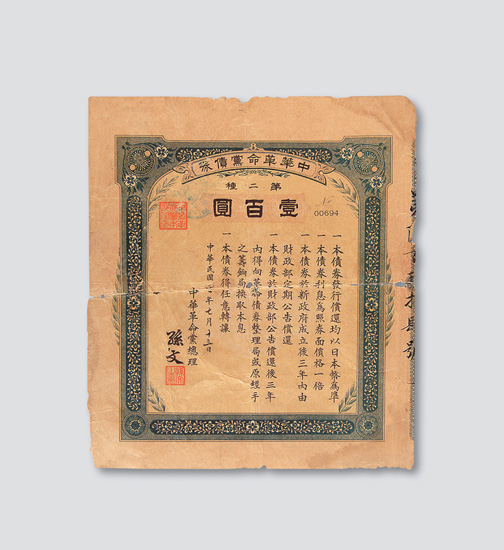 中華革命黨債券
第二種
壹百圓
00694
一本債券發行償還均以日本幣為準
一本債券利息為照券面價格一倍
一本債券於新政府成立後三年內由
財政部定期公告償還
一本債券於財政部公告償還後三年
內得向革命債券整理局或原經手
之籌餉局換取本息
一本債券得任意轉讓
中華民國 年七月十三日
中華革命黨總理
孫文